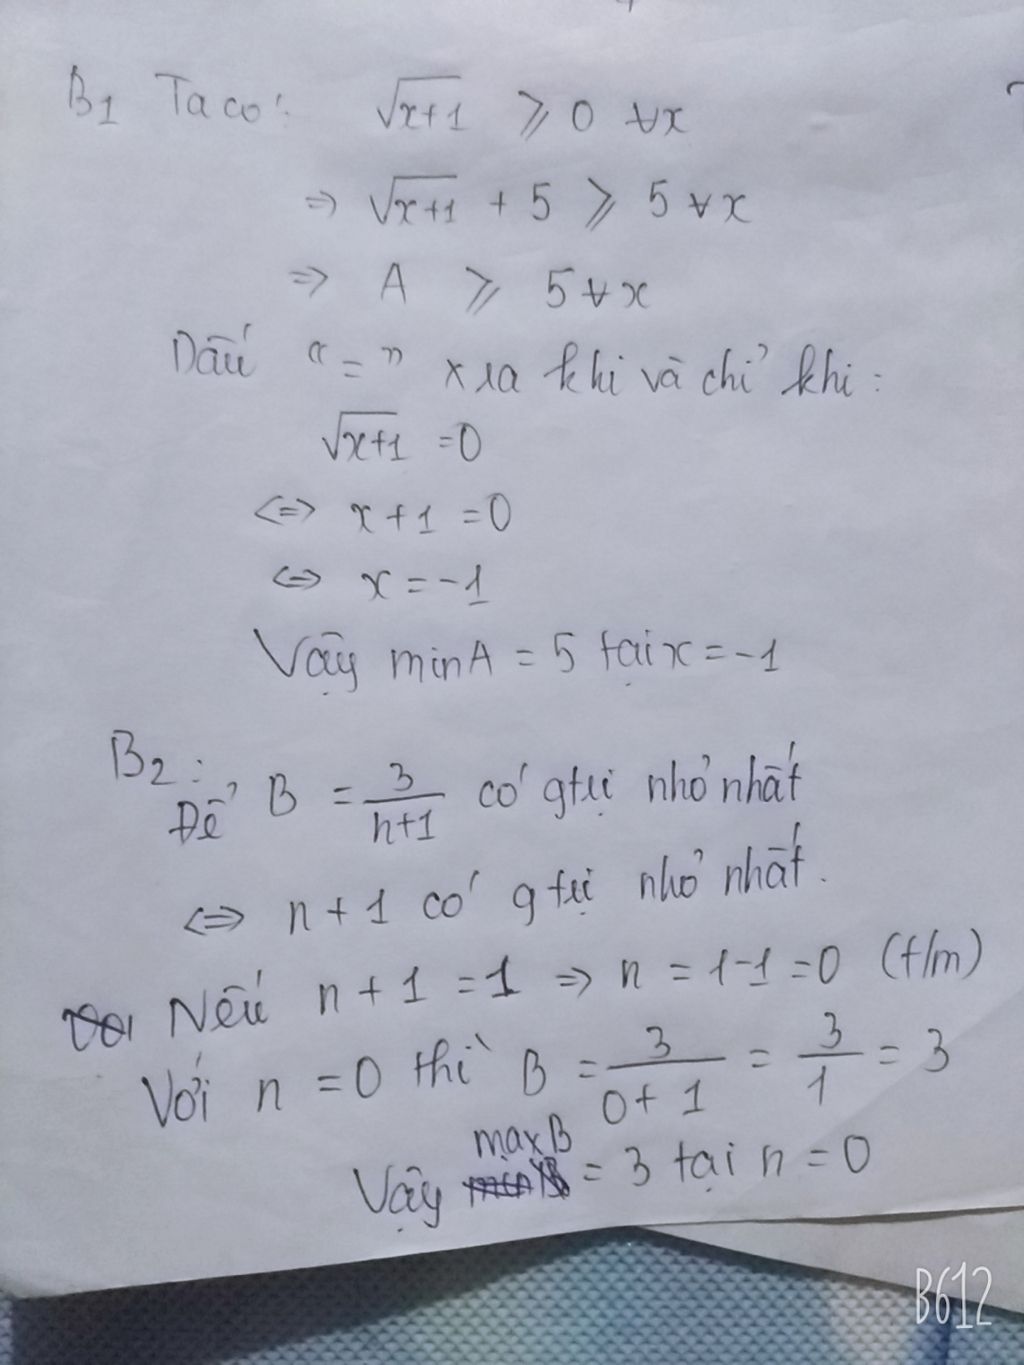 B1 Ta có: √x+1 ⩾ 0 ∀x
⇒ √x+1 + 5 ⩾ 5 ∀x
⇒ A ⩾ 5 ∀x
Dấu "=" xra khi và chỉ khi:
√x+1 = 0
⇔ x+1 = 0
⇔ x = -1
Vậy minA = 5 tại x = -1
B2:
Để B = 3/(n+1) có gtrị nhỏ nhất
⇔ n+1 có gtrị nhỏ nhất.
Nếu n+1 = 1 ⇒ n = 1-1 = 0 (t/m)
Với n = 0 thì B = 3/(0+1) = 3/1 = 3
Vậy maxB = 3 tại n = 0
B612